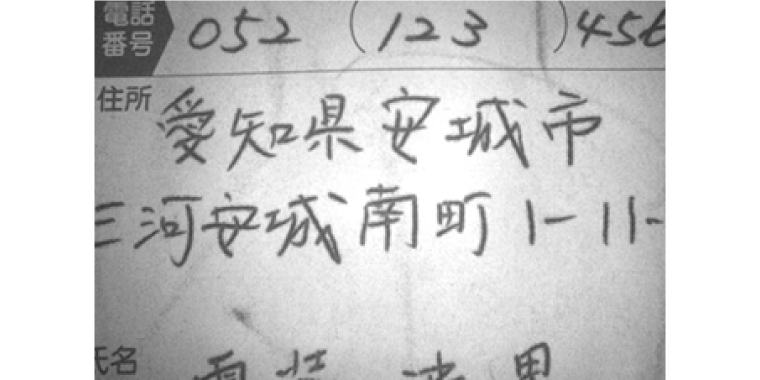 電話番号 052 (123) 456
住所 愛知県安城市
三河安城南町 1-11-
氏名